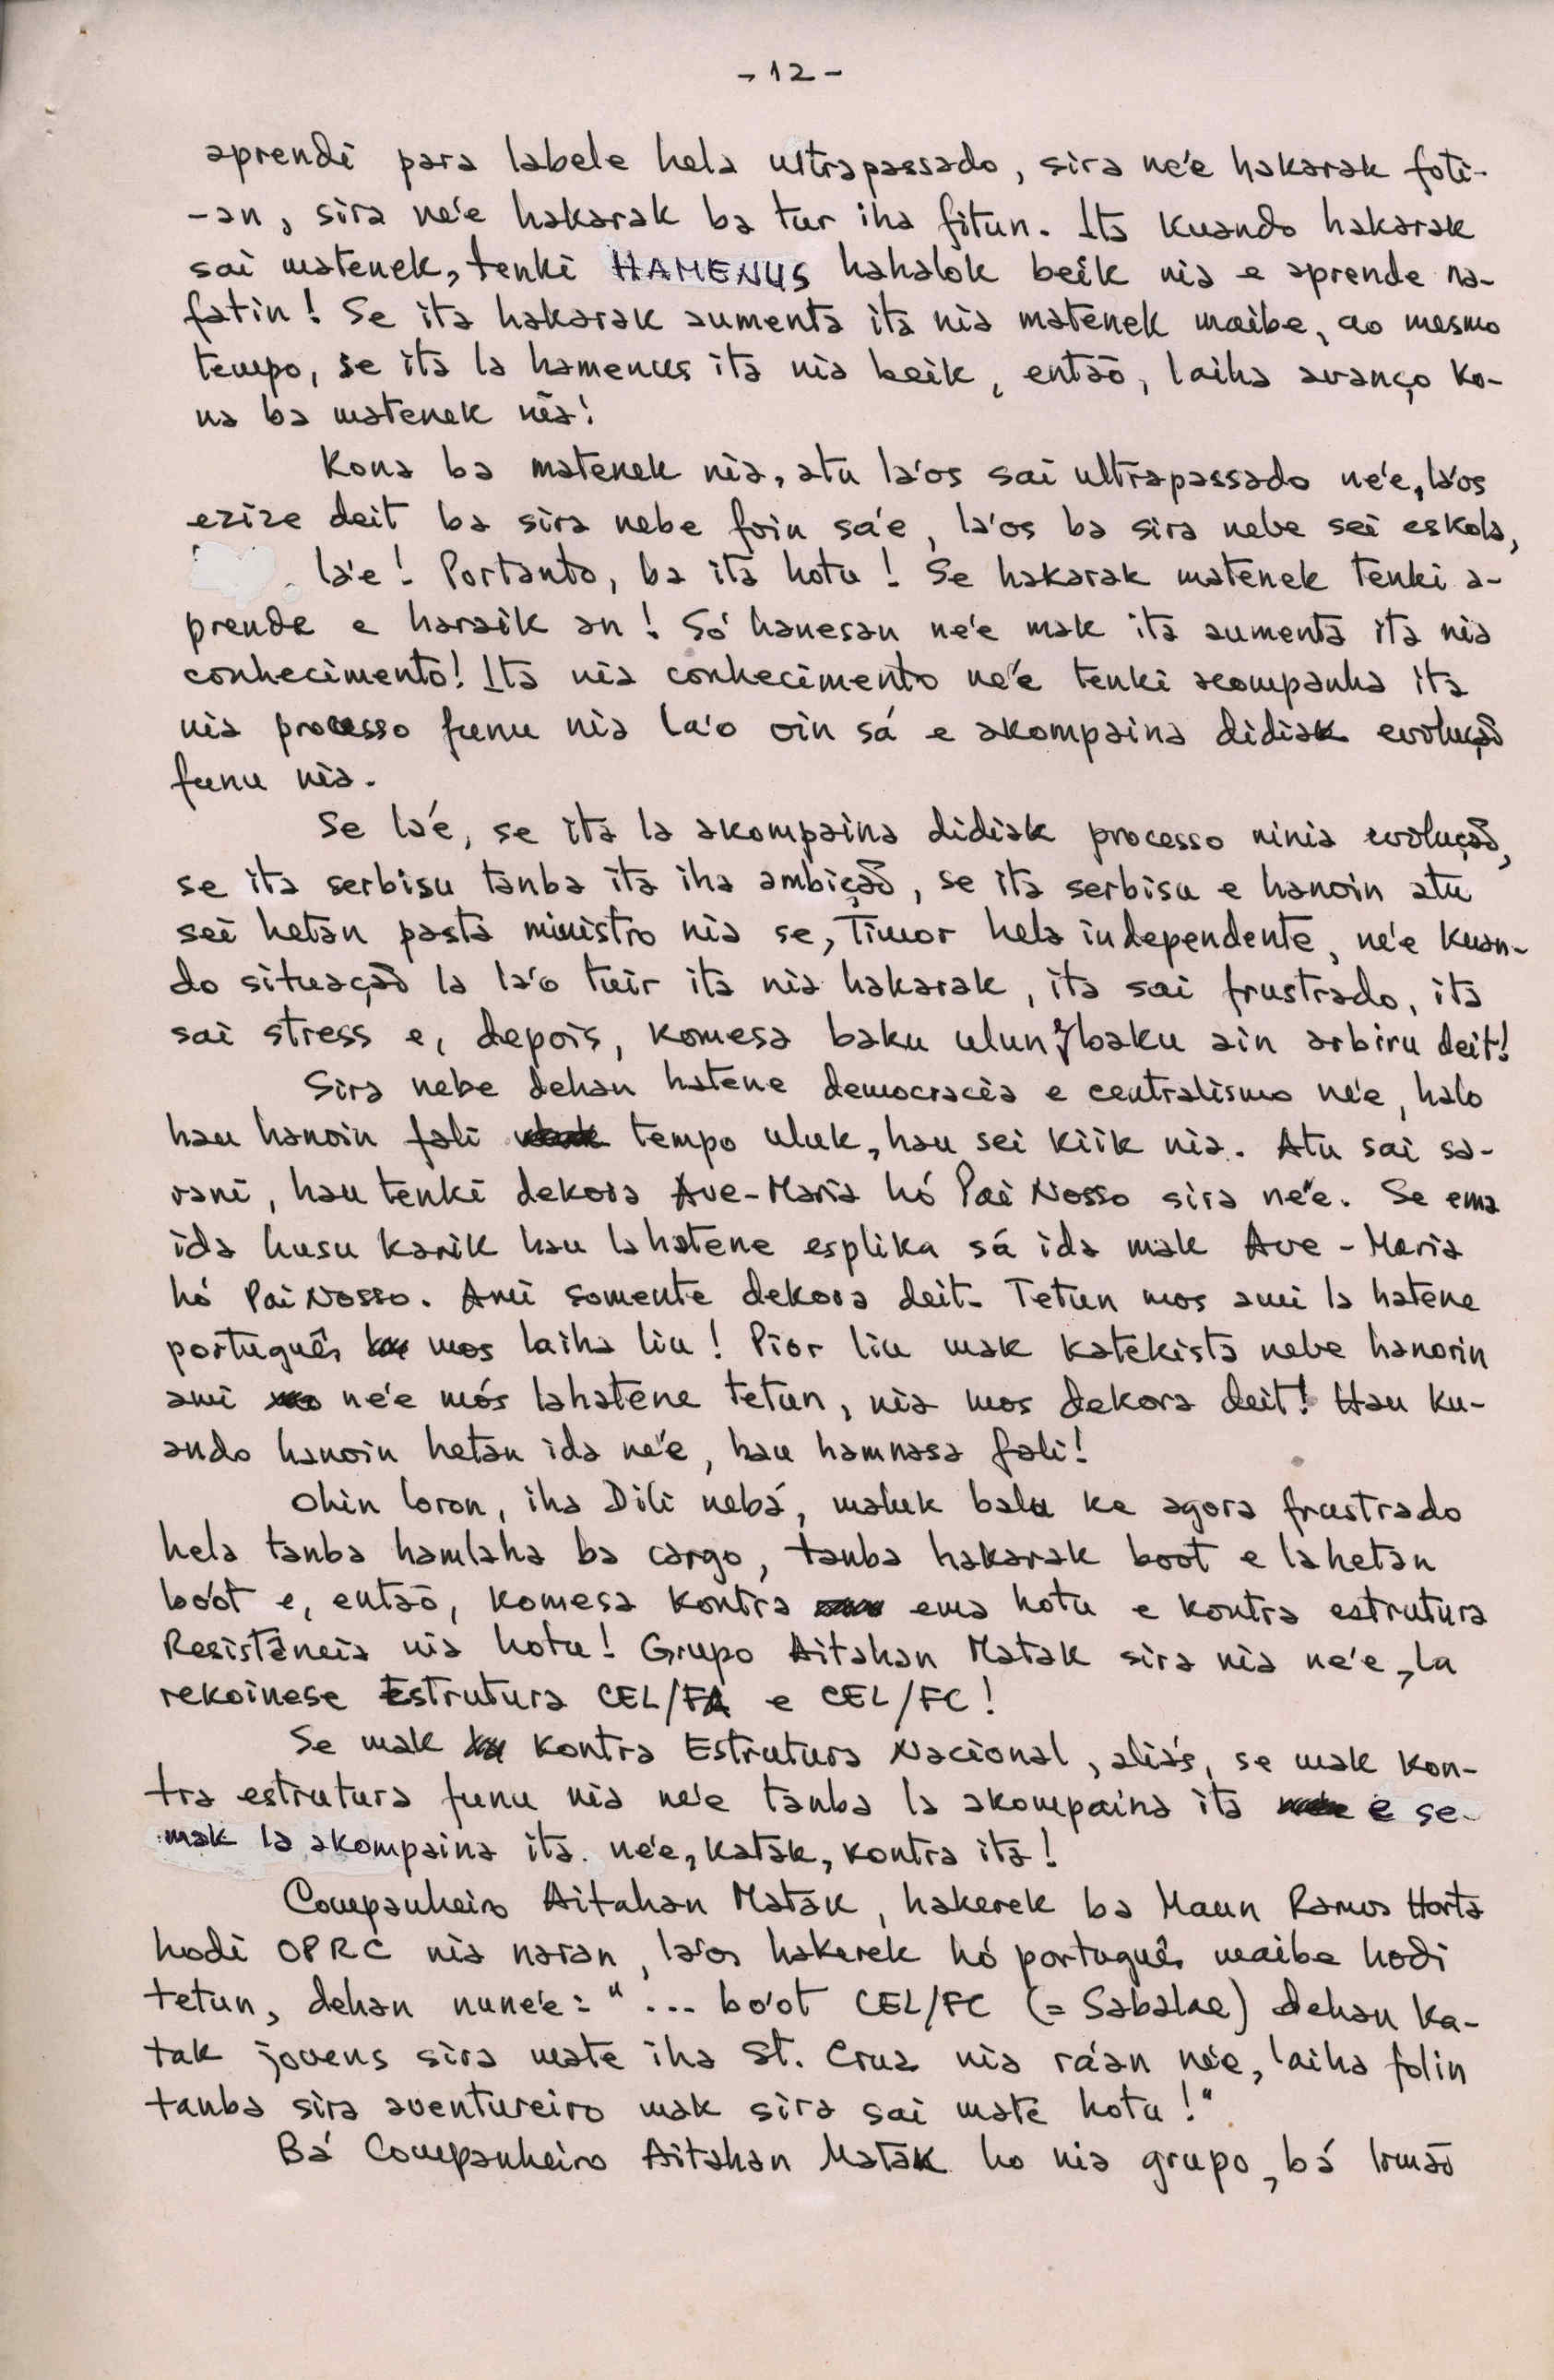 - 12 -
aprendi para labele hela ultrapassado, sira ne'e hakarak foti-
-an, sira ne'e hakarak ba tur iha fitun. Ita kuando hakarak
sai matenek, tenki HAMENUS hahalok beik nia e aprende na-
fatin! Se ita hakarak aumenta ita nia matenek maibe, ao mesmo
tempo, se ita la hamenus ita nia beik, então, laiha avanço ko-
na ba matenek nia!
Kona ba matenek nia, atu la'os sai ultrapassado ne'e, la'os
ezize deit ba sira nebe foin sa'e, la'os ba sira nebe sei eskola,
la'e! Portanto, ba ita hotu! Se hakarak matenek tenki a-
prende e haraik an! Só hanesan ne'e mak ita aumenta ita nia
conhecimento! Ita nia conhecimento ne'e tenki acompanha ita
nia processo funu nia la'o oin sá e akompaina didiak evolução
funu nia.
Se la'e, se ita la akompaina didiak processo ninia evolução,
se ita serbisu tanba ita iha ambição, se ita serbisu e hanoin atu
sei hetan pasta ministro nia se, Timor hela independente, ne'e kuan-
do situação la la'o tuir ita nia hakarak, ita sai frustrado, ita
sai stress e, depois, komesa baku ulun, baku ain arbiru deit!
Sira nebe dehan hatene democracia e centralismo ne'e, halo
hau hanoin fali tempo uluk, hau sei kiik nia. Atu sai sa-
rani, hau tenki dekora Ave-Maria hó Pai Nosso sira ne'e. Se ema
ida husu karik hau lahatene esplika sá ida mak Ave-Maria
hó Pai Nosso. Ami somente dekora deit. Tetun mos ami la hatene
português mos laiha liu! Pior liu mak katekista nebe hanorin
ami ne'e mós lahatene tetun, nia mos dekora deit! Hau ku-
ando hanoin hetan ida ne'e, hau hamnasa fali!
Ohin loron, iha Dili nebá, maluk balu ke agora frustrado
hela tanba hamlaha ba cargo, tanba hakarak boot e lahetan
bo'ot e, então, komesa kontra ema hotu e kontra estrutura
Resistência nia hotu! Grupo Aitahan Matak sira nia ne'e, la
rekoinese Estrutura CEL/FA e CEL/FC!
Se mak kontra Estrutura Nacional, aliás, se mak kon-
tra estrutura funu nia ne'e tanba la akompaina ita e se
mak la akompaina ita ne'e, katak, kontra ita!
Companheiro Aitahan Matak, hakerek ba Maun Ramos Horta
hodi OPRC nia naran, la'os hakerek hó português maibe hodi
tetun, dehan nune'e: "... bo'ot CEL/FC (= Sabalae) dehan ka-
tak jovens sira mate iha St. Cruz nia rá'an ne'e, laiha folin
tanba sira aventureiro mak sira sai mate hotu!"
Bá Companheiro Aitahan Matak ho nia grupo, bá Irmão